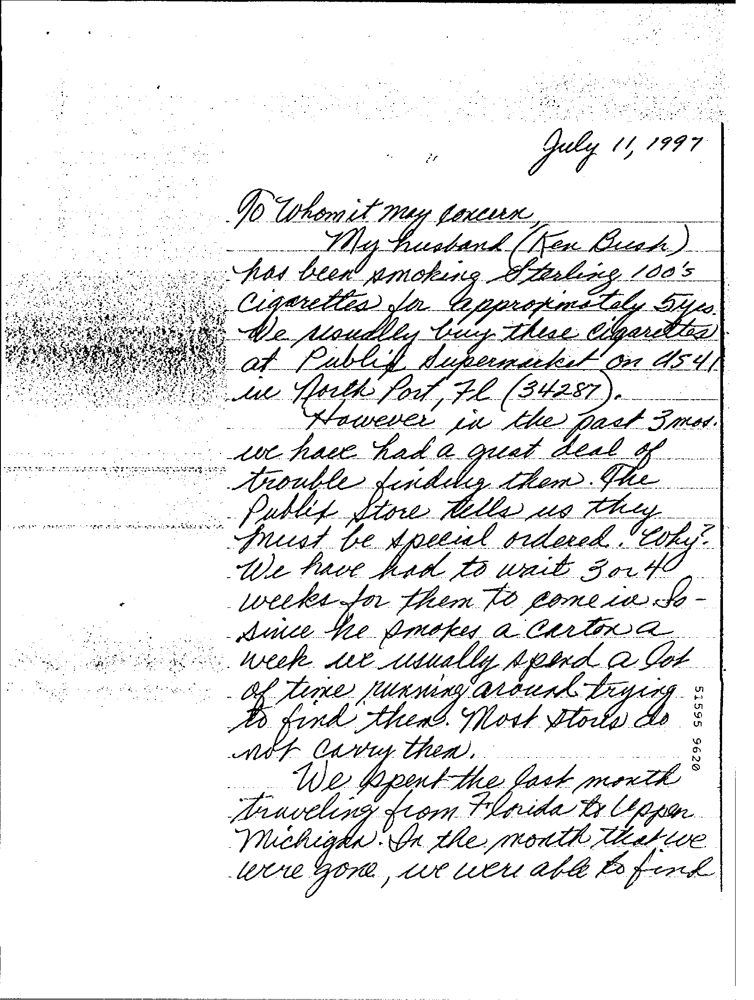 July 11, 1997
To Whom it may concern,
My husband (Ken Bush)
has been smoking Sterling 100's
Cigarettes for approximately 5 yrs.
We usually buy these cigarettes
at Publix Supermarket on US 41
in North Port, Fl (34287).
However in the past 3 mos.
we have had a great deal of
trouble finding them. The
Publix Store tells us they
must be special ordered. Why?
We have had to wait 3 or 4
weeks for them to come in. So -
since he smokes a carton a
week we usually spend a lot
of time running around trying
to find them. Most stores do
not carry them.
We spent the last month
traveling from Florida to Upper
Michigan. In the month that we
were gone, we were able to find
51595 9620